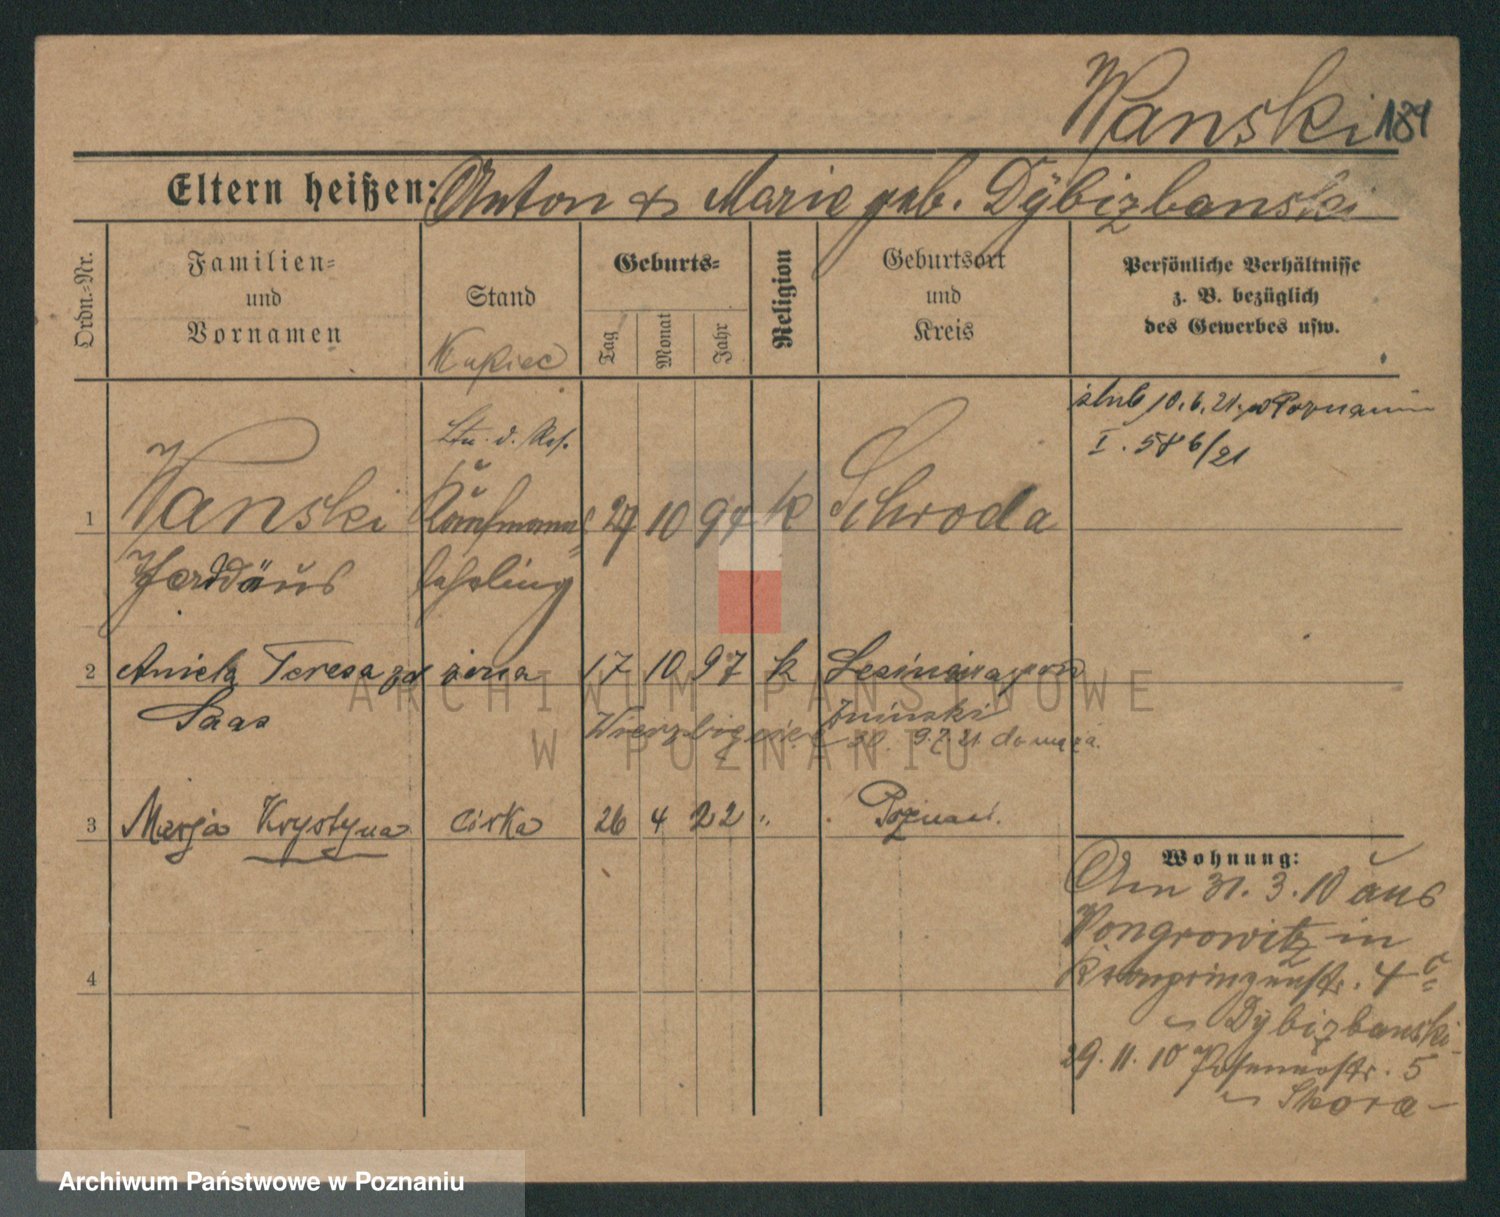 Wanski 184
Eltern heißen: Anton & Marie geb. Dÿbizbanski
Ordn.-Nr.
Familien-
und
Vornamen
Stand
Kupiec
Geburts-
Tag
Monat
Jahr
Religion
Geburtsort
und
Kreis
Persönliche Verhältnisse
z. B. bezüglich
des Gewerbes usw.
ślub 10.6.21. w Poznaniu
I. 586/21
Ltn. d. Res.
1 Wanski Kaufmanns 27 10 94 k Schroda
lehrling
2 Aniela Teresa zd żona 17 10 97 k
Saas
Wierzbięcice
Żniński
30. 9.7.21
3 Marja Krystyna córka 26 4 22 " Poznań.
4
Wohnung:
Am 31.3.10 aus
Wongrowitz in
Kronprinzenstr. 4
Dÿbizbanski
29.11.10 Posenerstr. 5
Skora
ARCHIWUM PAŃSTWOWE
W POZNANIU
Archiwum Państwowe w Poznaniu